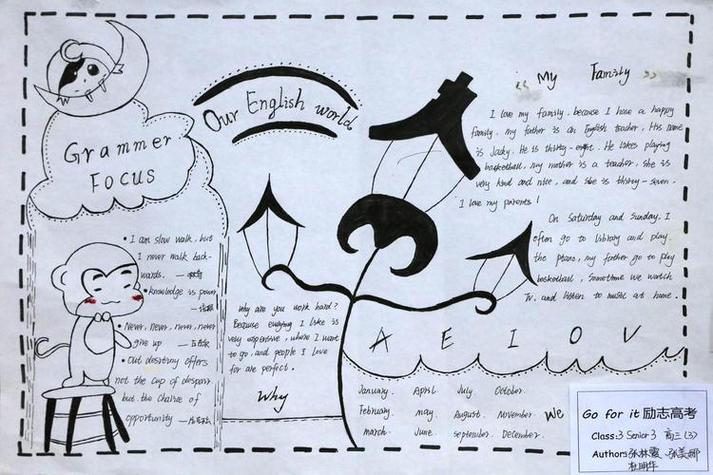 Our English world
Grammer
Focus
• I am slow walk, but
I never walk back-
wards. —
• knowledge is power
—
• Never, never, never, never
give up —
• Out destiny offers
not the cup of despair
but the chance of
opportunity —
Why are you work hard?
Because everying I like is
very expensive, where I want
to go, and people I love
for are perfect.
Why
« My Family »
I love my family, because I have a happy
family. my father is an English teacher, His name
is Jacky. He is thirty-eight. He likes playing
basketball, my mother is a teacher, she is
very kind and nice, and she is thirty-seven.
I love my parents!
On Saturday and Sunday, I
often go to library and play
the piano, my father go to play
basketball, sometime we watch
TV. and listen to music at home.
A E I O U
January. April. July October.
February. may. August. November
march. June. september. December.
We
Go for it 励志高考
Class:3 Senior 3 高三(3)
Authors:张林霞、张美娜
杜明华